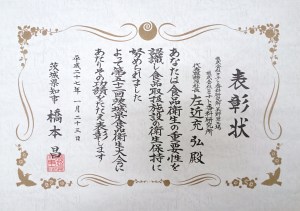 表彰状
左近充 弘 殿
あなたは食品衛生の重要性を
認識し食品取扱施設の衛生保持に
努められました
よって第五十二回茨城県食品衛生大会に
あたりその功績をたたえ表彰します
平成二十七年 一月 二十三日
茨城県知事 橋本 昌